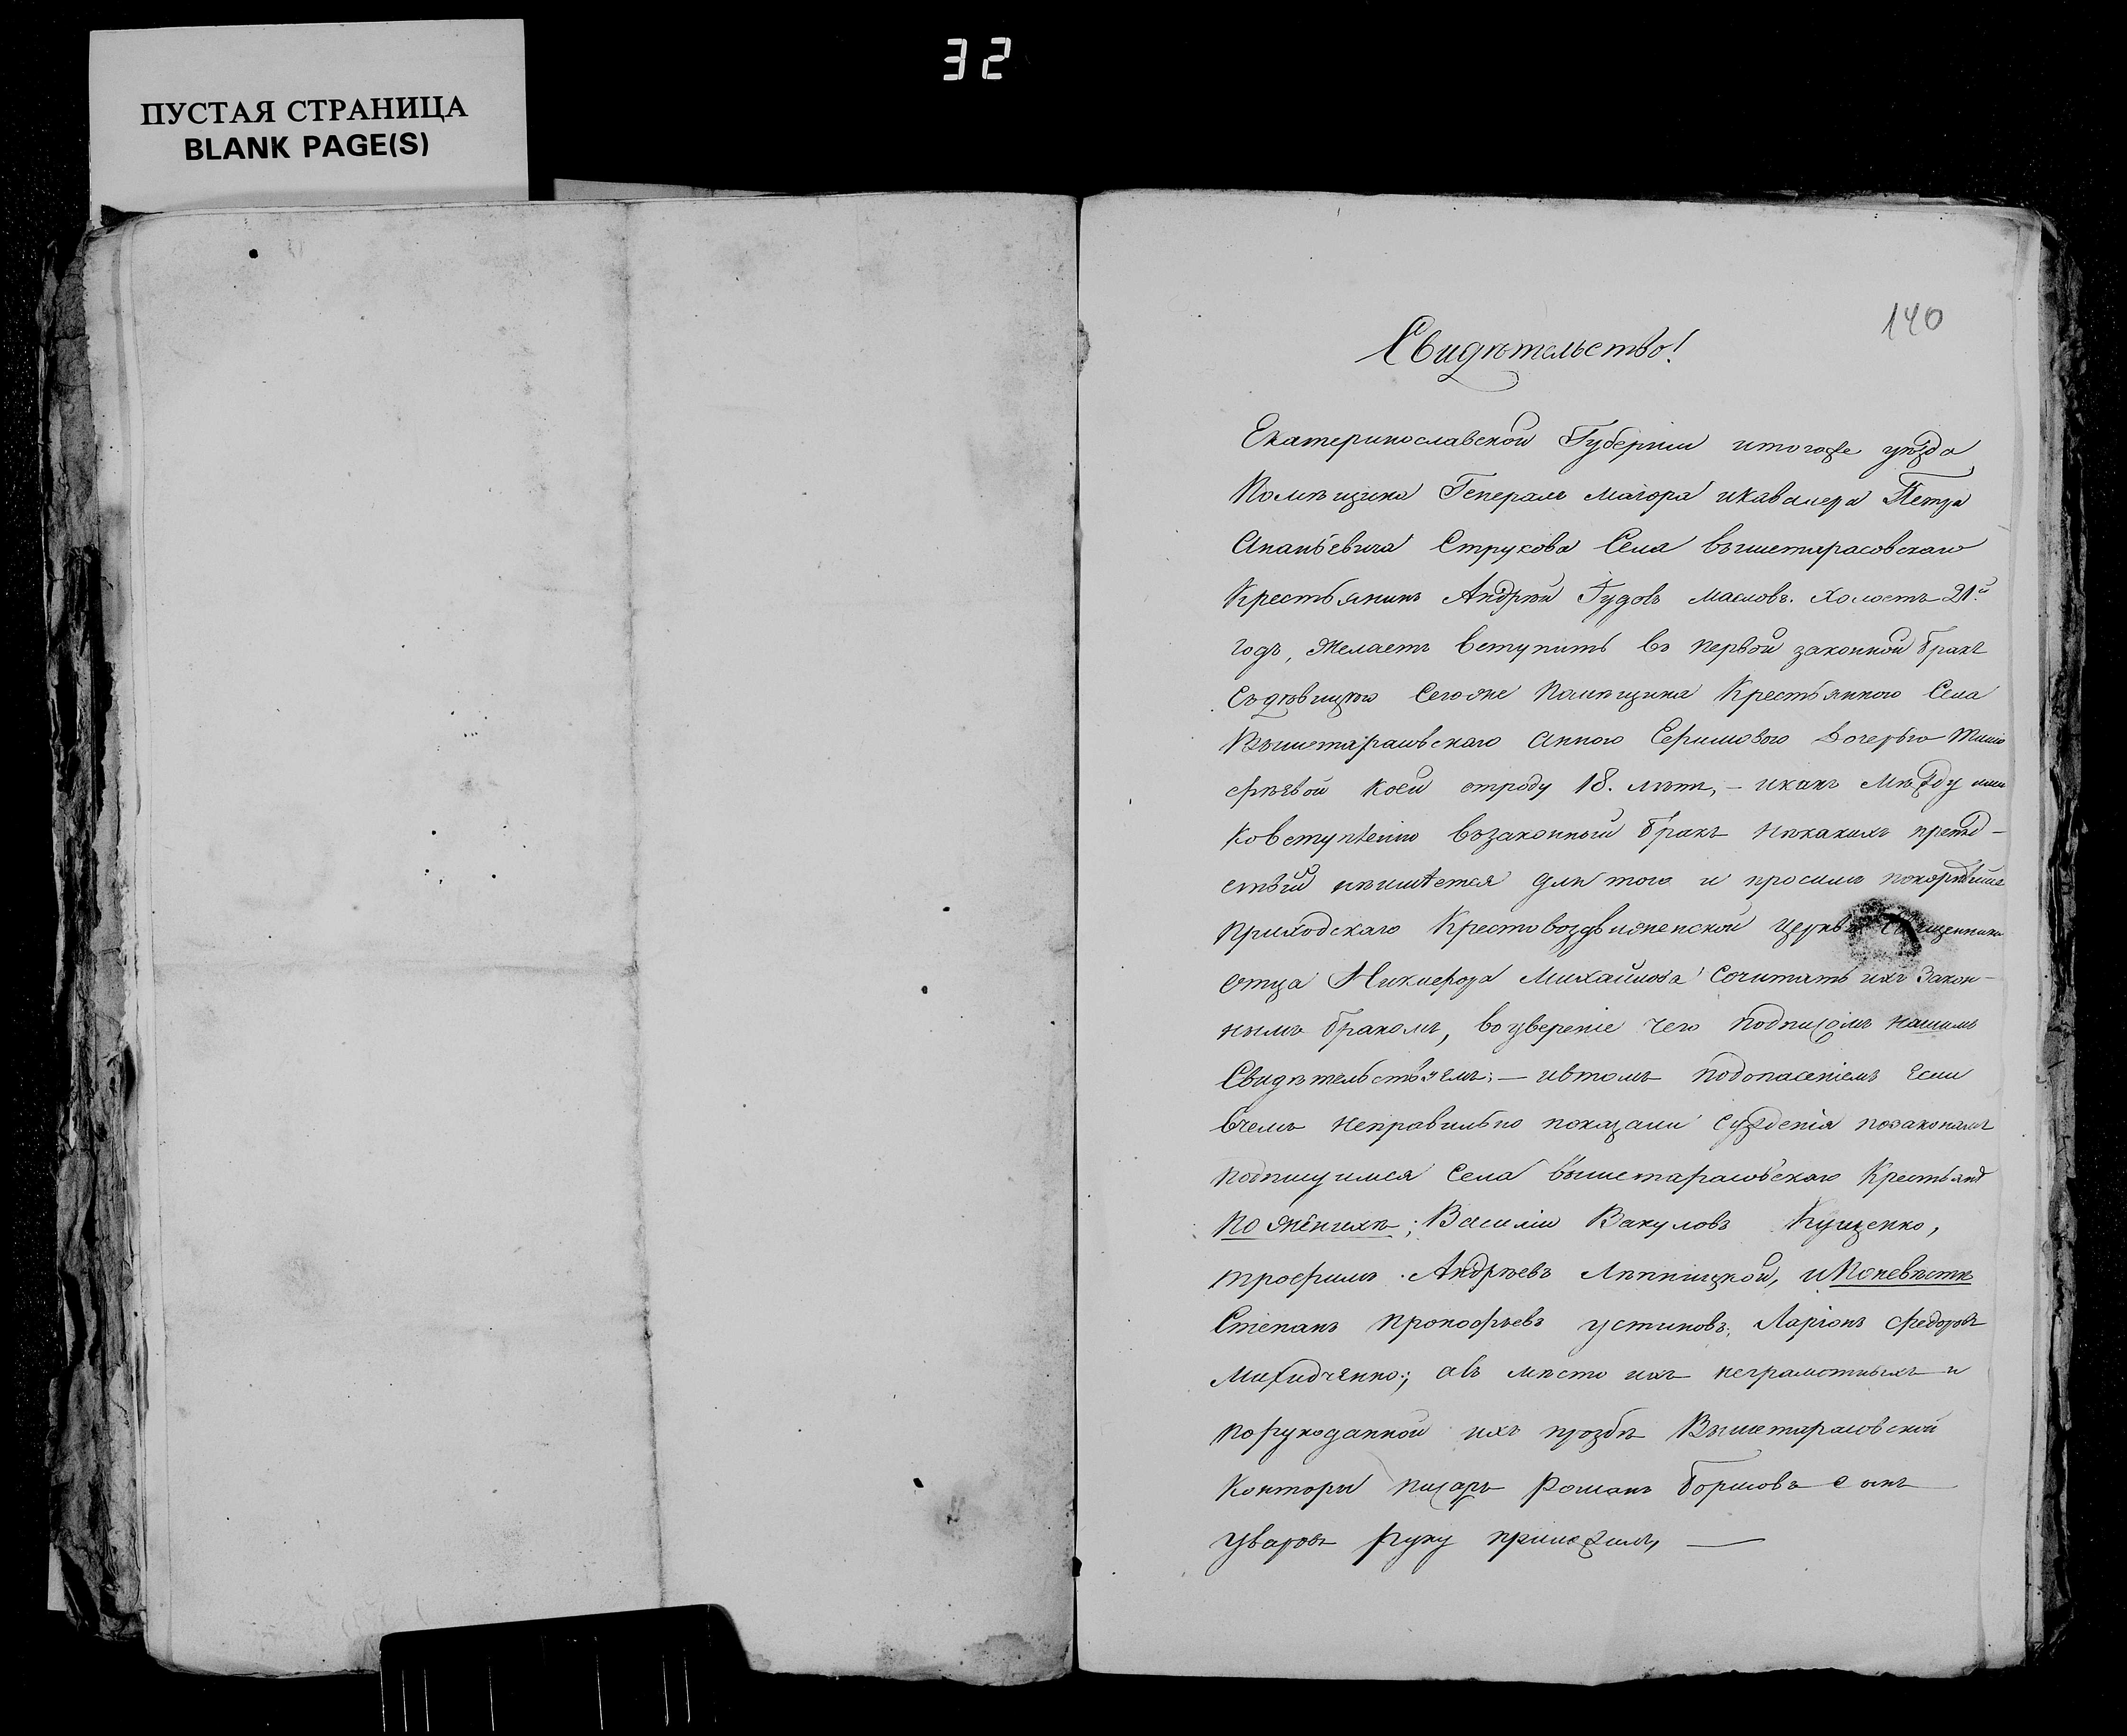 32
ПУСТАЯ СТРАНИЦА
BLANK PAGE(S)
140
Свидѣтельство!
Екатеринославской Губерніи итогоже уѣзда
Помѣщика Генералъ Маіора икавалера Петра
Ананьевича Струкова Села вышетарасовскаго
Крестьянинъ Андрѣй Гудовъ масловъ. Холостъ 21й
годъ, желаетъ вступить въ первой законной бракъ
съдѣвицею Сегоже Помѣщика Крестьянкою Села
Вышетарасовскаго Анною Сериковою дочерью Тимо
фѣевой коей отроду 18. лѣтъ, – икакъ мѣжду ими
ковступленію взаконный бракъ никакихъ препяд–
ствій неимѣется для того и просимъ покорнѣйше
приходскаго Крестовоздвиженской церкви священника
отца Никифора Михайлова сочитать ихъ Закон–
нымъ бракомъ, воувереніе чего подписомъ нашимъ
Свидѣтельствуемъ; – ивтомъ подопасеніемъ если
вчемъ неправильно показали сужденія позаконамъ
подпишуимся Села вышетарасовскаго Крестьянѣ
По женихѣ; Василіи Вакуловъ Кущенко,
трофимъ Андрѣевъ Лѣпницкой, и Поневѣстѣ
Степанъ прокофьевъ устиновъ; Ларіонъ федоровъ
авъ мѣсто ихъ неграмотныхъ и
порукоданной ихъ прозбѣ Вышетарасовской
Конторы писарь Романъ сынъ
уваровъ руку приложилъ, —